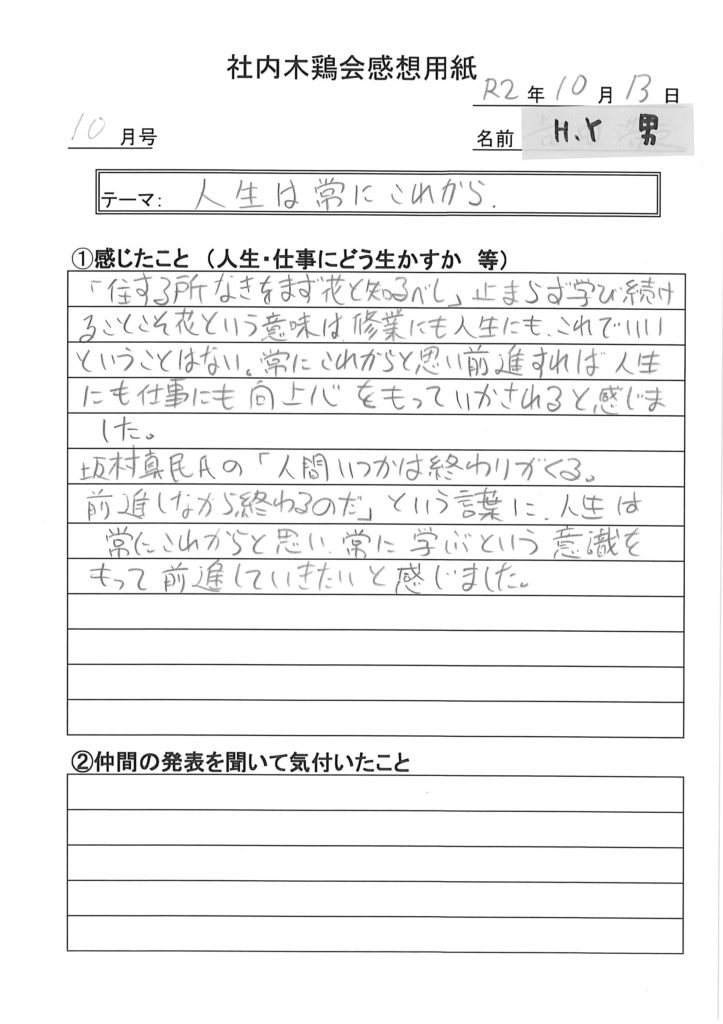 社内木鶏会感想用紙
R2年10月13日
10月号
名前 H.Y 男
テーマ: 人生は常にこれから.
①感じたこと (人生・仕事にどう生かすか 等)
「住する所なきをまず花と知るべし」止まらず学び続け
ることこそ花という意味は、修業にも人生にも、これでいい
ということはない。常にこれからと思い前進すれば人生
にも仕事にも向上心をもっていかされると感じま
した。
坂村真民氏の「人間いつかは終わりがくる。
前進しながら終わるのだ」という言葉に、人生は
常にこれからと思い、常に学ぶという意識を
もって前進していきたいと感じました。
②仲間の発表を聞いて気付いたこと